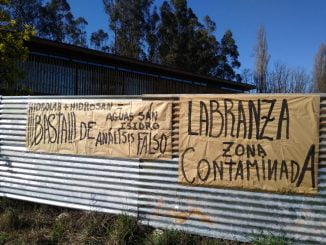 HIDROLAB + HIDROSAN =
AGUAS SAN
ISIDRO
¡¡¡BASTA!!! DE
ANÁLISIS FALSO
LABRANZA
ZONA
CONTAMINADA